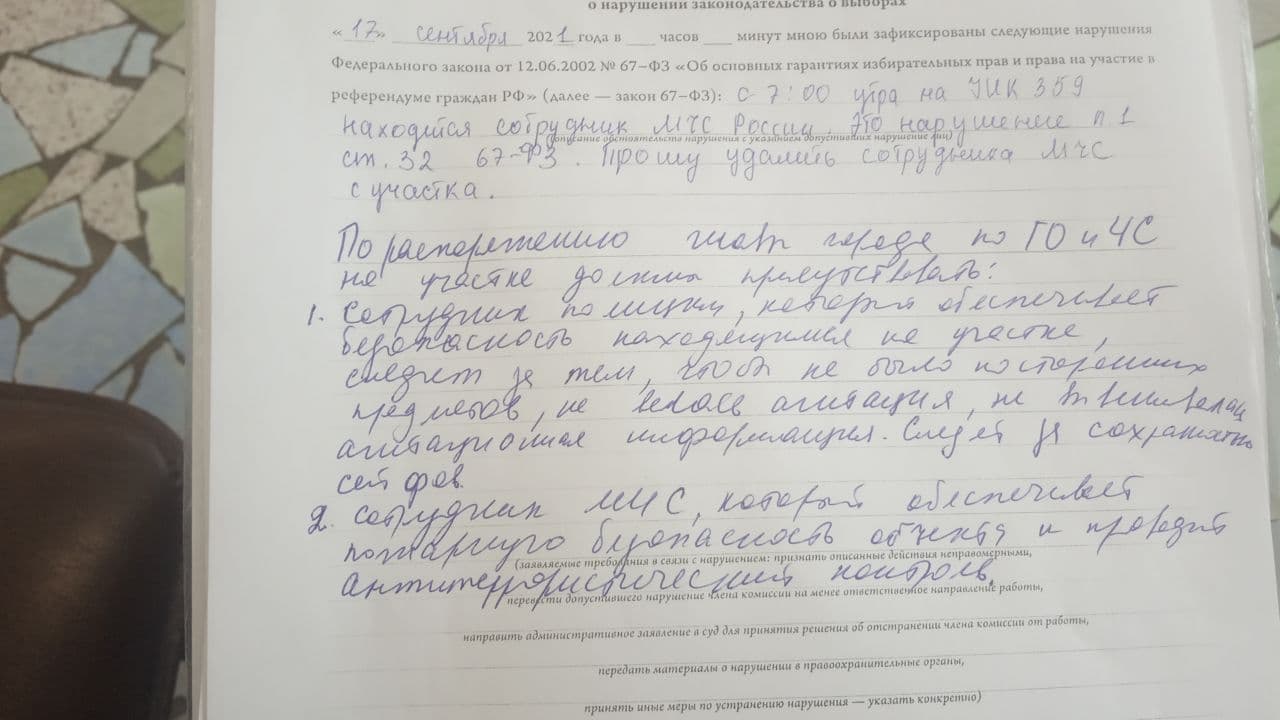 о нарушении законодательства о выборах
«17» сентября 2021 года в ___ часов ___ минут мною были зафиксированы следующие нарушения
Федерального закона от 12.06.2002 № 67–ФЗ «Об основных гарантиях избирательных прав и права на участие в
референдуме граждан РФ» (далее — закон 67–ФЗ): с 7:00 утра на УИК 359
находится сотрудник МЧС России, это нарушение п 1
(описание обстоятельств нарушения с указанием допустивших нарушение лиц)
ст. 32 67-ФЗ. Прошу удалить сотрудника МЧС
с участка.
По распоряжению главы города по ГО и ЧС
на участке должны присутствовать:
1. Сотрудник полиции, который обеспечивает
безопасность находящихся на участке,
следит за тем, чтобы не было посторонних
предметов, не велась агитация, не
агитационная информация. Следит за сохранность
сейфов.
2. Сотрудник МЧС, который обеспечивает
пожарную безопасность объекта и проводит
(заявляемые требования в связи с нарушением: признать описанные действия неправомерными,
антитеррористический контроль.
перевести допустившего нарушение члена комиссии на менее ответственное направление работы,
направить административное заявление в суд для принятия решения об отстранении члена комиссии от работы,
передать материалы о нарушении в правоохранительные органы,
принять иные меры по устранению нарушения — указать конкретно)